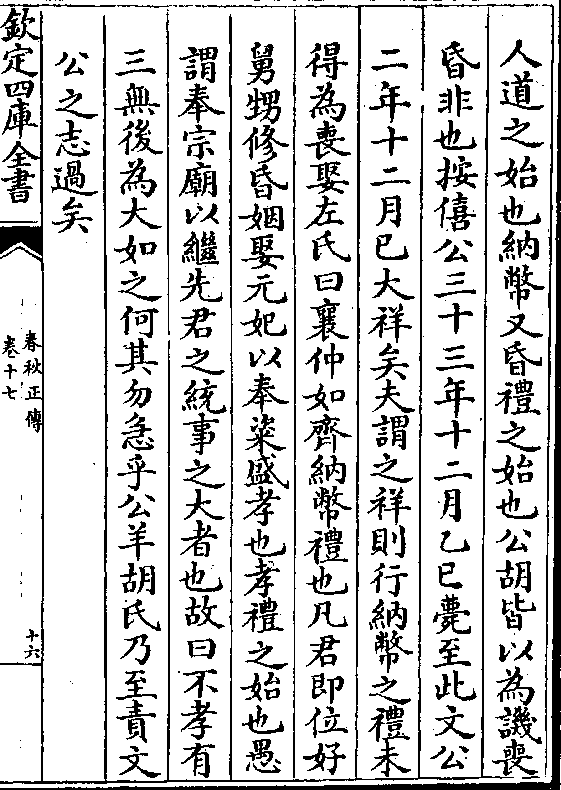 人道之始也納幣又昏禮之始也公胡皆以為譏喪
昏非也按僖公三十三年十二月乙巳薨至此文公
二年十二月已大祥矣夫謂之祥則行納幣之禮未
得為喪娶左氏曰襄仲如齊納幣禮也凡君即位好
舅甥修昏姻娶元妃以奉粢盛孝也孝禮之始也愚
謂奉宗廟以繼先君之統事之大者也故曰不孝有
三無後為大如之何其勿急乎公羊胡氏乃至責文
公之志過矣
欽定四庫全書
春秋正傳
卷十七
十六